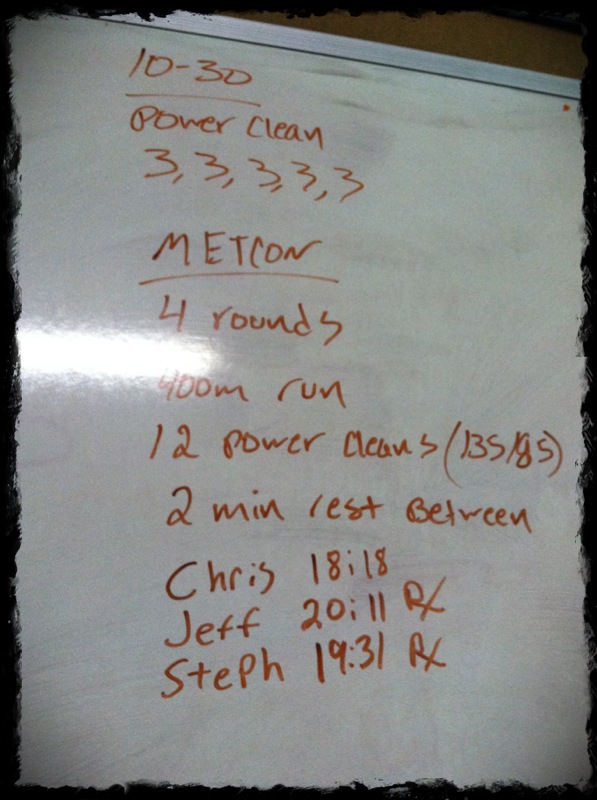 10-30
Power Clean
3, 3, 3, 3, 3
METCON
4 rounds
400m run
12 power cleans (135/85)
2 min rest Between
Chris 18:18
Jeff 20:11 Rx
Steph 19:31 Rx